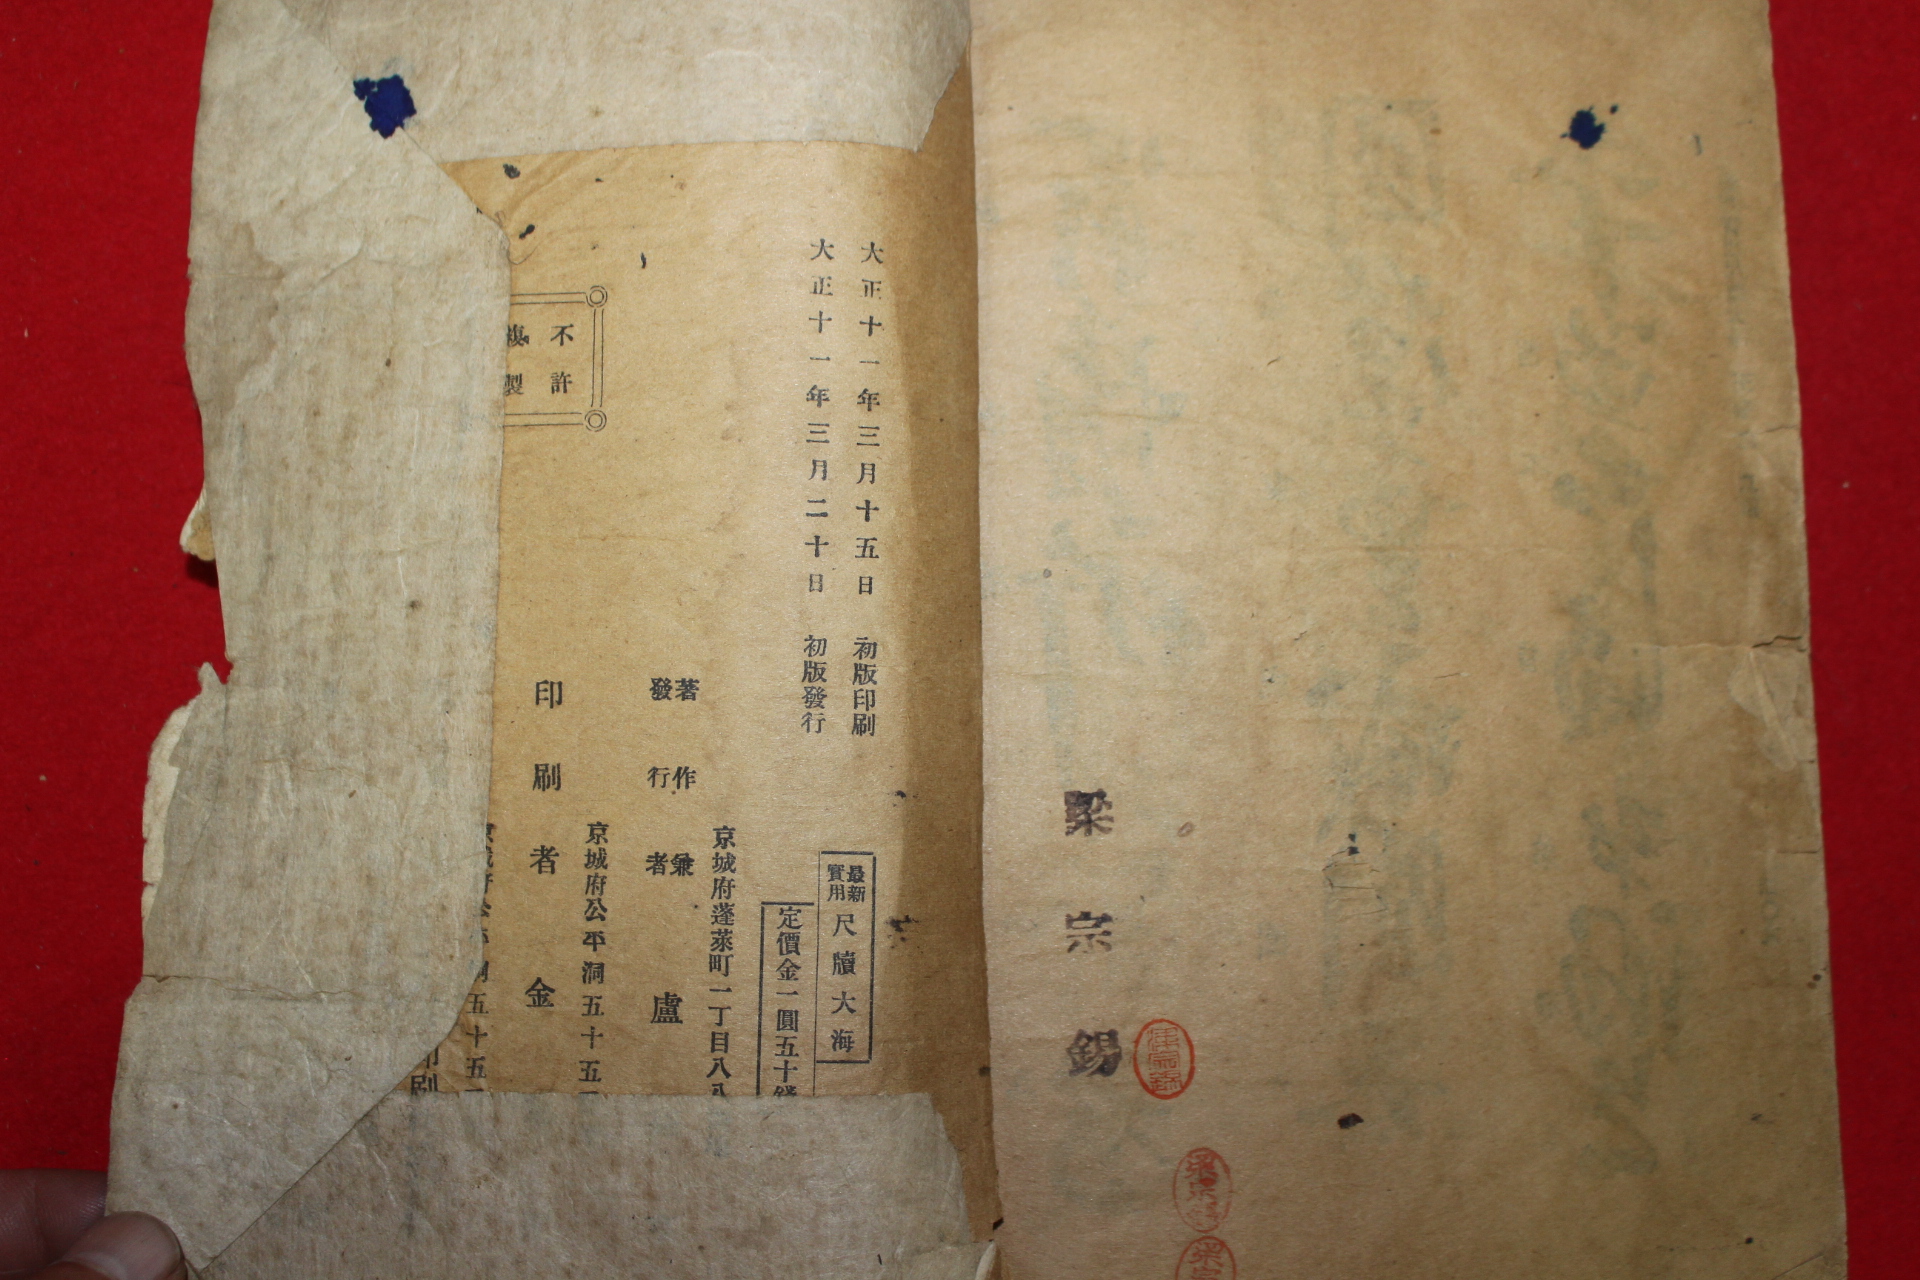 梁宗錫
大正十一年三月十五日 初版印刷
大正十一年三月二十日 初版發行
最新實用 尺牘大海
定價金一圓五十錢
京城府蓬萊町一丁目八八
著作兼
發行者 盧
京城府公平洞五十五
印刷者 金
京城府公平洞五十五
印刷
不許
複製